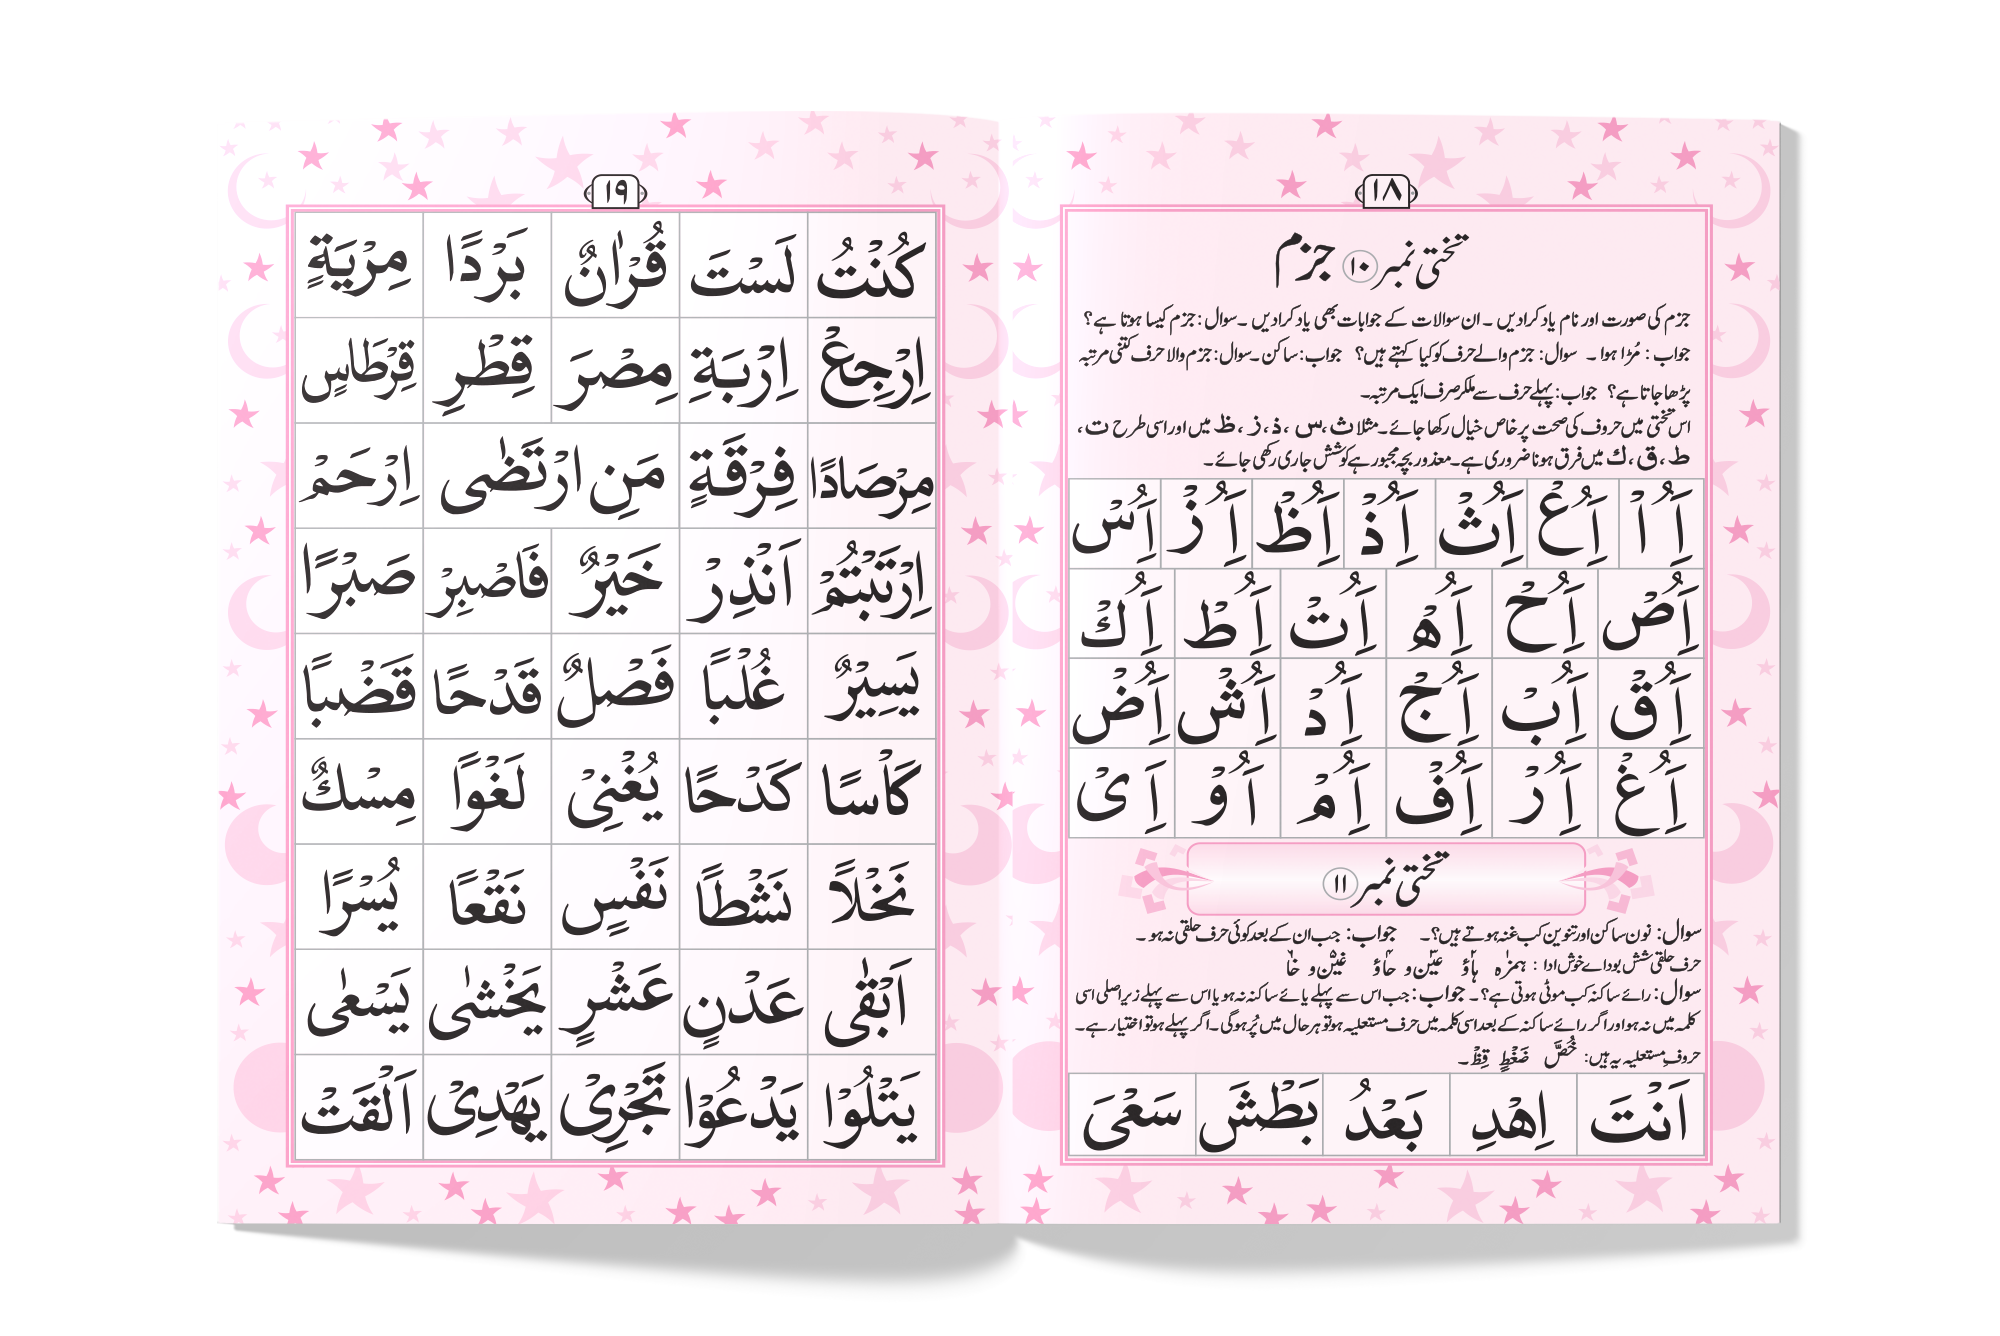 ١٨
تختی نمبر ١٠ جزم
جزم کی صورت اور نام یاد کرادیں ۔ ان سوالات کے جوابات بھی یاد کرادیں ۔ سوال : جزم کیسا ہوتا ہے؟
جواب : مُڑا ہوا ۔ سوال : جزم والے حرف کو کیا کہتے ہیں؟ جواب : ساکن ۔ سوال : جزم والا حرف کتنی مرتبہ
پڑھا جاتا ہے؟ جواب : پہلے حرف سے ملکر صرف ایک مرتبہ۔
اس تختی میں حروف کی صحت پر خاص خیال رکھا جائے ۔ مثلا ث، س ، ذ، ز ، ظ میں اور اسی طرح ت ،
ط ، ق ، ك میں فرق ہونا ضروری ہے۔ معذور بچہ مجبور ہے کوشش جاری رکھی جائے ۔
اَِ اُ اْ اَِ اُ عْ اَِ اُ ثْ اَِ اُ ذْ اَِ اُ ظْ اَِ اُ زْ اَِ اُ سْ
اَِ اُ صْ اَِ اُ حْ اَِ اُ هْ اَِ اُ تْ اَِ اُ طْ اَِ اُ كْ
اَِ اُ قْ اَِ اُ بْ اَِ اُ جْ اَِ اُ دْ اَِ اُ شْ اَِ اُ ضْ
اَِ اُ غْ اَِ اُ رْ اَِ اُ فْ اَِ اُ مْ اَ اُ وْ اَِ یْ
تختی نمبر ١١
سوال: نون ساکن اور تنوین کب غنہ ہوتے ہیں؟۔ جواب: جب ان کے بعد کوئی حرف حلقی نہ ہو ۔
حرف حلقی شش بود اے خوش ادا : ہمزہ ہاؤ عین و حاؤ غین و خا
سوال: رائے ساکنہ کب موٹی ہوتی ہے؟ ۔ جواب : جب اس سے پہلے یائے ساکنہ نہ ہو یا اس سے پہلے زیر اصلی اسی
کلمہ میں نہ ہو اور اگر رائے ساکنہ کے بعد اسی کلمہ میں حرف مستعلیہ ہو تو ہر حال میں پُر ہوگی ۔ اگر پہلے ہو تو اختیار ہے۔
حروف مستعلیہ یہ ہیں: خُصَّ ضَغْطٍ قِظْ ۔
اَنْتَ اِهْدِ بَعْدُ بَطْشَ سَعْیَ
١٩
كُنْتُ لَسْتَ قُرْاٰنٌ بَرْدًا مِرْيَةٍ
اِرْجِعْ اِرْبَةِ مِصْرَ قِطْرِ قِرْطَاسٍ
مِرْصَادًا فِرْقَةٍ مَنِ ارْتَضٰى اِرْحَمْ
اِرْتَبْتُمْ اَنْذِرْ خَيْرٌ فَاصْبِرْ صَبْرًا
يَسِيْرٌ غُلْبًا فَصْلٌ قَدْحًا قَضْبًا
كَاْسًا كَدْحًا يُغْنِىْ لَغْوًا مِسْكٌ
نَخْلًا نَشْطًا نَفْسٍ نَقْعًا يُسْرًا
اَبْقٰى عَدْنٍ عَشْرٍ يَخْشٰى يَسْعٰى
يَتْلُوْا يَدْعُوْا تَجْرِىْ يَهْدِىْ اَلْقَتْ